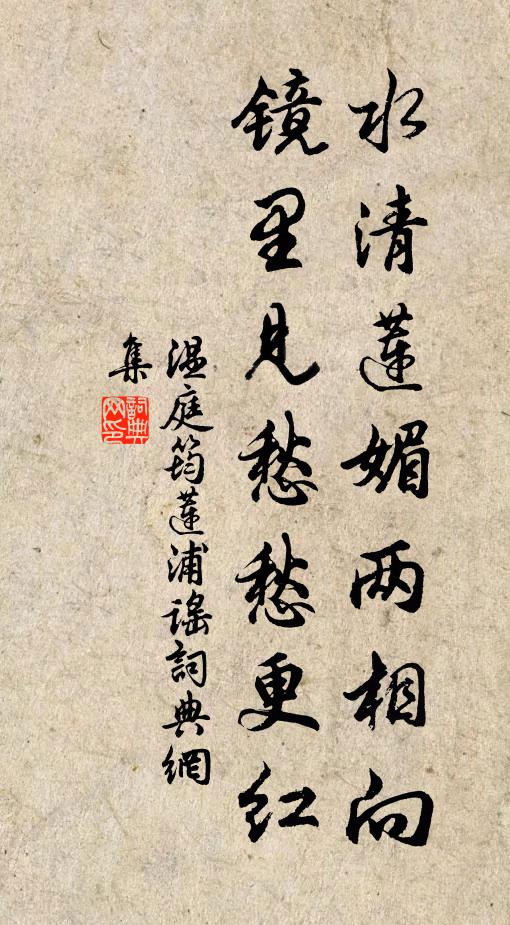 水清莲媚两相向
镜里见愁愁更红
温庭筠莲浦谣词典網
集
詞典
网印